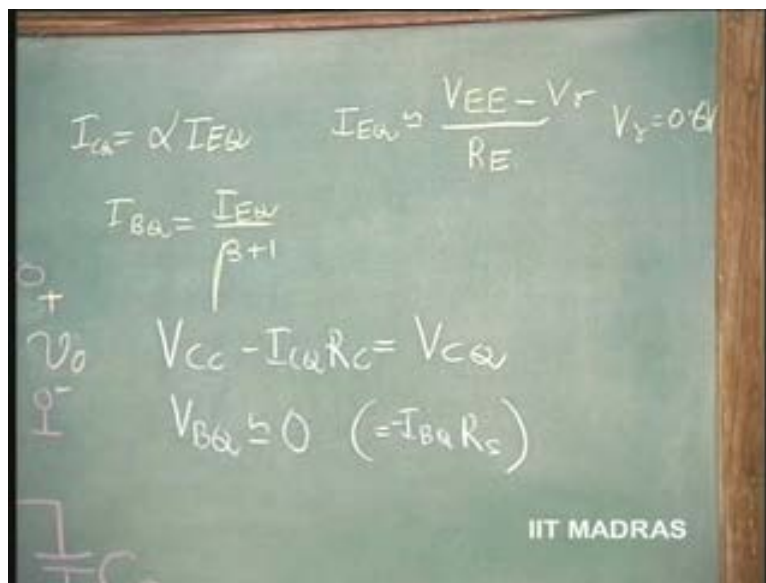 I_CQ = α I_EQ    I_EQ ≃ (V_EE - V_γ) / R_E    V_γ = 0.6V
I_BQ = I_EQ / (β+1)
+
V_CC - I_CQ R_C = V_CQ
v_o
V_BQ ≃ 0 (= -I_BQ R_S)
-
IIT MADRAS
C